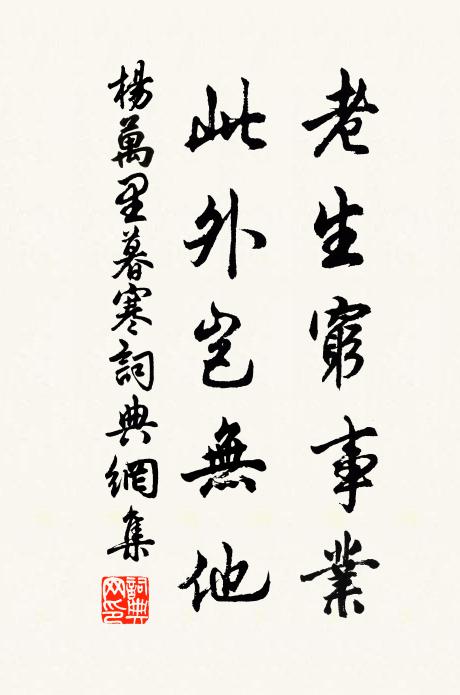 老生窮事業
此外豈無他
楊萬里暮寒詞典網集
詞典網印